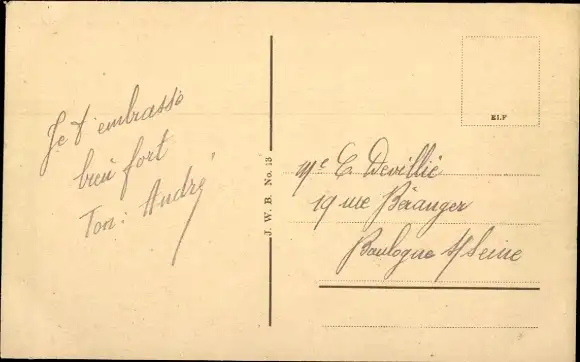 Je t'embrasse
bien fort
Ton : André
J. W. B. No. 13
ELF
Me C. Devillié
19 rue Béranger
Boulogne s/Seine